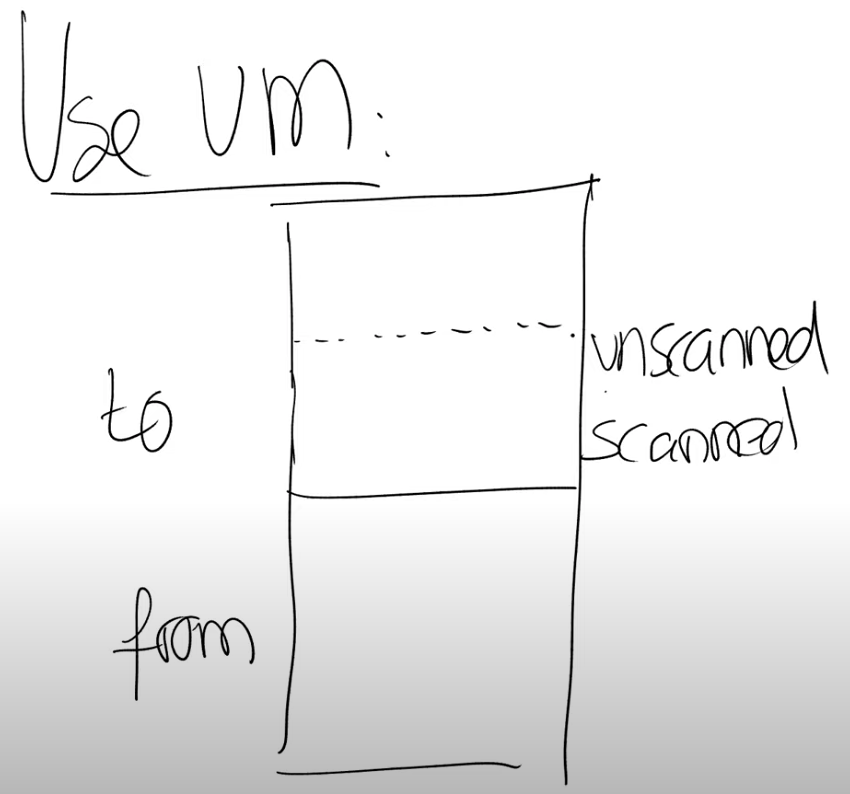 Use VM:
unscanned
to
scanned
from